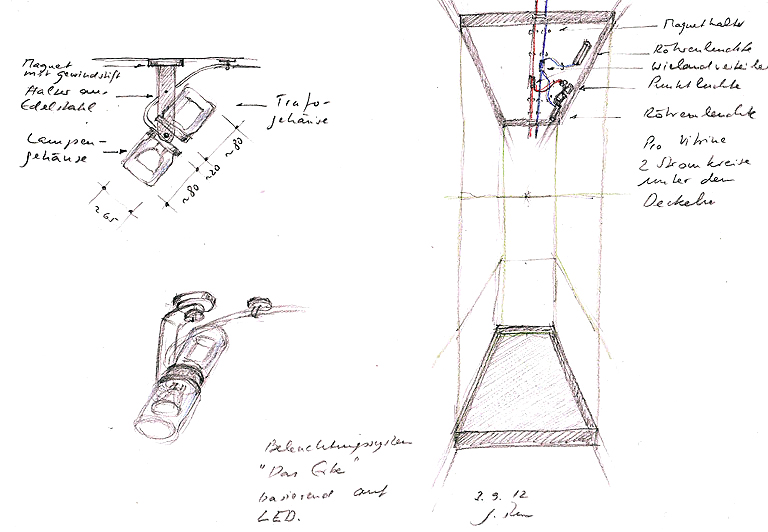 Magnet
mit gewindestift
Halter aus
Edelstahl
Lampen-
gehäuse
Trafo-
gehäuse
~80
~20
~80
Magnethalter
Röhrenleuchte
Wielandverteiler
Punktleuchte
Röhrenleuchte
Pro Vitrine
2 Stromkreise
unter den
Deckeln
Beleuchtungssystem
"Das Erbe"
basierend auf
LED.
3.9.12